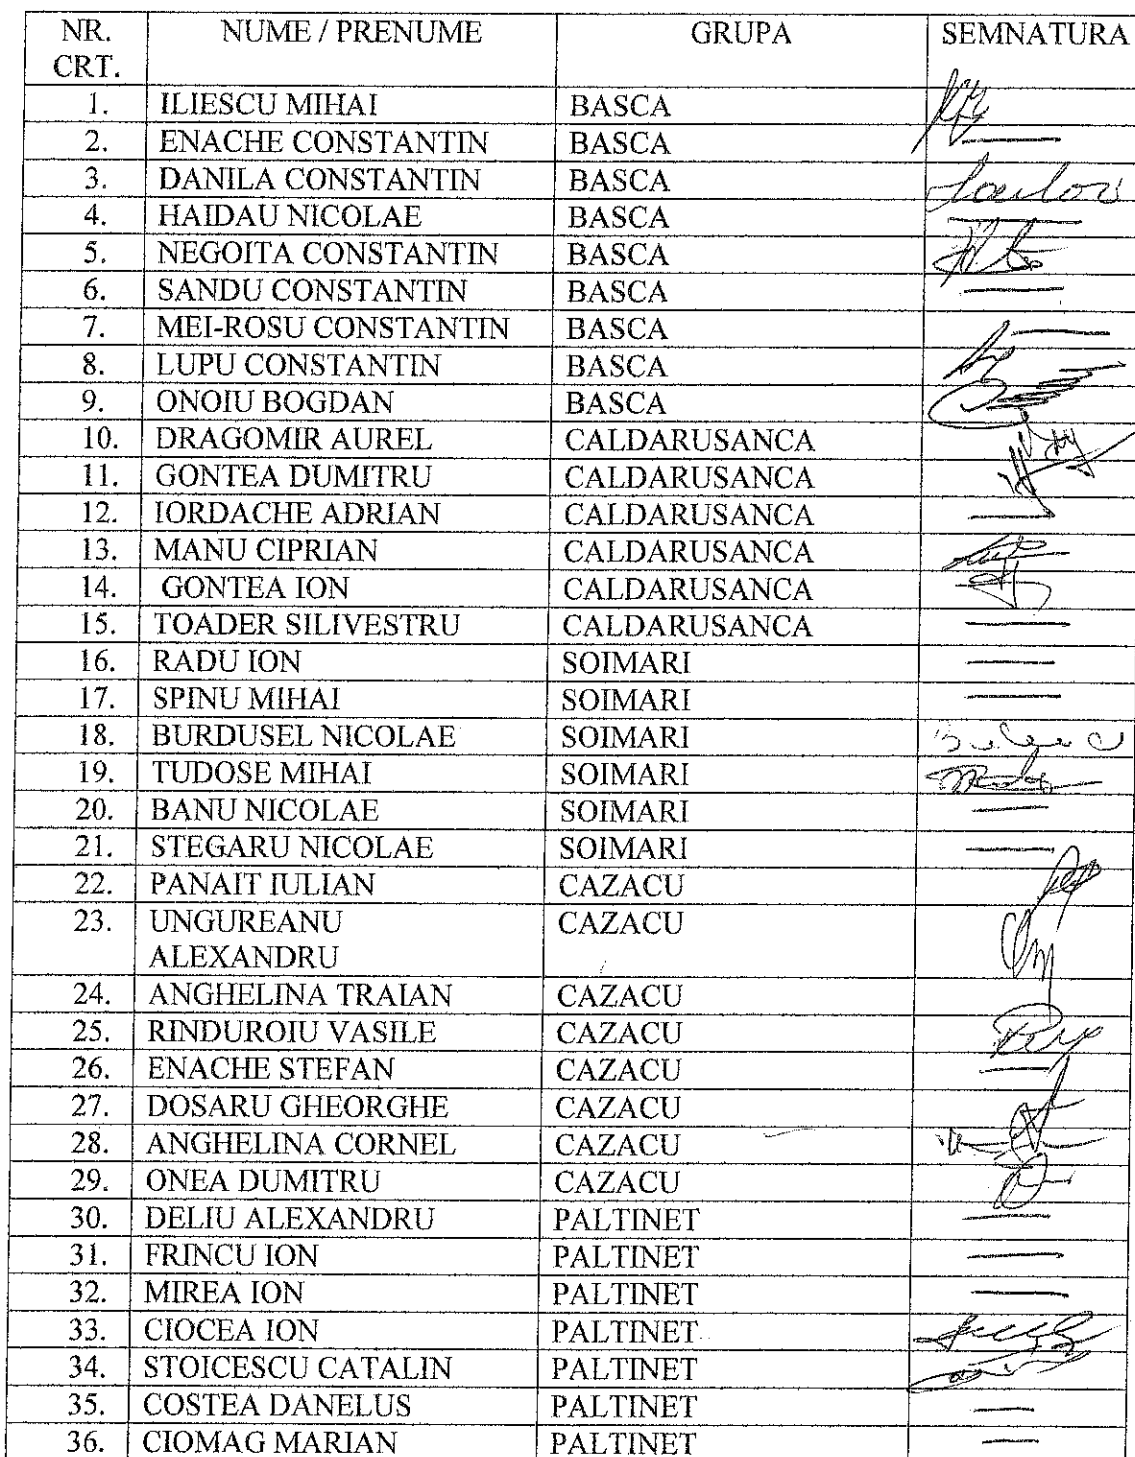 NR. CRT. NUME / PRENUME GRUPA SEMNATURA
1. ILIESCU MIHAI BASCA
2. ENACHE CONSTANTIN BASCA —
3. DANILA CONSTANTIN BASCA
4. HAIDAU NICOLAE BASCA —
5. NEGOITA CONSTANTIN BASCA
6. SANDU CONSTANTIN BASCA —
7. MEI-ROSU CONSTANTIN BASCA —
8. LUPU CONSTANTIN BASCA
9. ONOIU BOGDAN BASCA
10. DRAGOMIR AUREL CALDARUSANCA
11. GONTEA DUMITRU CALDARUSANCA
12. IORDACHE ADRIAN CALDARUSANCA —
13. MANU CIPRIAN CALDARUSANCA
14. GONTEA ION CALDARUSANCA
15. TOADER SILIVESTRU CALDARUSANCA —
16. RADU ION SOIMARI —
17. SPINU MIHAI SOIMARI —
18. BURDUSEL NICOLAE SOIMARI
19. TUDOSE MIHAI SOIMARI
20. BANU NICOLAE SOIMARI —
21. STEGARU NICOLAE SOIMARI —
22. PANAIT IULIAN CAZACU
23. UNGUREANU CAZACU
ALEXANDRU
24. ANGHELINA TRAIAN CAZACU
25. RINDUROIU VASILE CAZACU
26. ENACHE STEFAN CAZACU —
27. DOSARU GHEORGHE CAZACU
28. ANGHELINA CORNEL CAZACU
29. ONEA DUMITRU CAZACU
30. DELIU ALEXANDRU PALTINET —
31. FRINCU ION PALTINET —
32. MIREA ION PALTINET —
33. CIOCEA ION PALTINET
34. STOICESCU CATALIN PALTINET
35. COSTEA DANELUS PALTINET —
36. CIOMAG MARIAN PALTINET —